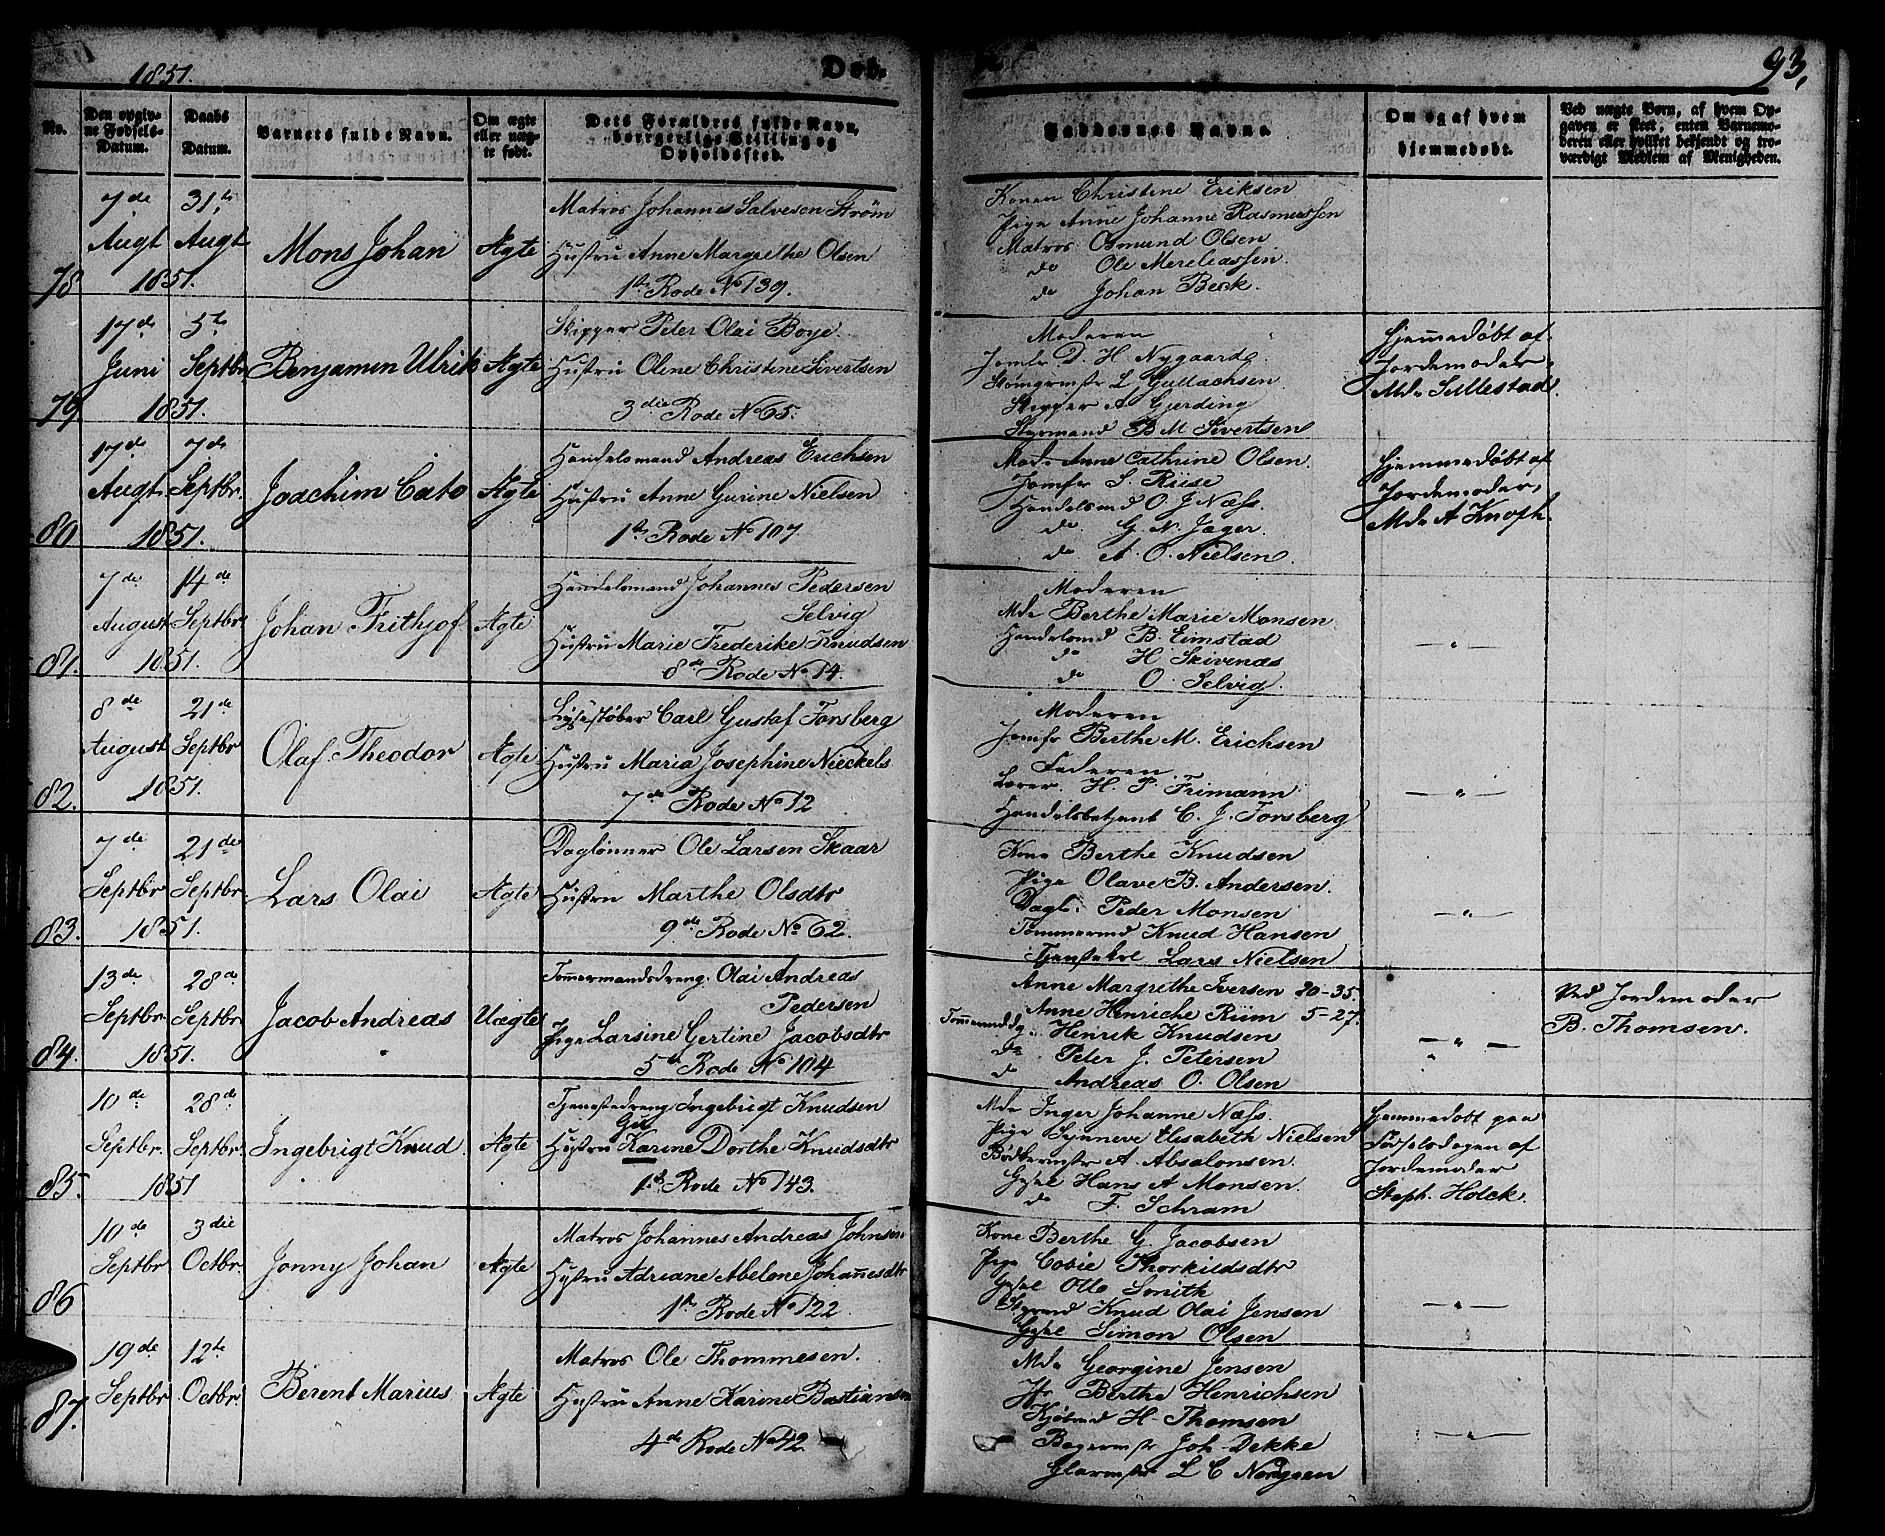 1851.
Døb.
93,
No.
Den opgiv-
ne Fødsels-
Datum.
Daabs
Datum.
Barnets fulde Navn.
Om ægte
eller uæg-
te født.
Dets Forældres fulde Navn,
borgerlige Stilling og
Opholdssted.
Faddernes Navne.
Om og af hvem
hjemmedøbt.
Ved uægte Børn, af hvem Op-
gaven er skeet, enten Barnemo-
deren eller hvilket bekjendt og tro-
værdigt Medlem af Menigheden.
78
7de
Augt
31te
Augt
1851.
Mons Johan
Ægte
Matros Johannes Salvesen Strøm
Hustru Anne Margrethe Olsen
1te Rode No 139.
Konen Christine Eriksen
Pige Anne Johanne Rasmussen
Matros Osmund Olsen
do Ole Mereliassen
do Johan Beck.
79
17de
Juni
5te
Septbr
1851.
Benjamin Ulrik
Ægte
Skipper Peter Olai Boye.
Hustru Oline Christine Sivertsen
3die Rode No 65.
Moderen
Jomfr D. H. Nygaard.
L Gullachsen
Skipper A Gjerding
Styrmand B M Sivertsen
Hjemmedøbt af
Jordemoder
Md. Sillestad.
80
17de
Augt.
7de
Septbr.
1851.
Joachim Cato
Ægte
Handelsmand Andreas Erichsen
Hustru Anne Gurine Nielsen
1te Rode No 107
Mad. Anne Cathrine Olsen.
Jomfr S. Riise
Handelsmd O. J Næss.
do G. N. Jæger.
do A. O. Nielsen.
Hjemmedøbt af
Jordemoder,
Md. A Knoph.
81.
7de
August
14de
Septbr.
1851.
Johan Frithjof
Ægte
Handelsmand Johannes Pedersen
Selvig
Hustru Marie Frederike Knudsen
8de Rode No 14.
Moderen
Mde Berthe Marie Monsen
Handelsmd B. Eimstad
do H Skivenæs
do O. Selvig.
— " —
82.
8de
August
21de
Septbr
1851.
Olaf Theodor
Ægte
Lysestøber Carl Gustaf Forsberg
Hustru Maria Josephine Nieckels
7de Rode No 12
Moderen
Jomfr Berthe M. Erichsen
Faderen
Lærer H. P. Frimann
Handelsbetjent C. J. Forsberg
— " —
83.
7de
Septbr
21de
Septbr
1851.
Lars Olai
Ægte
Daglønner Ole Larsen Skaar
Hustru Marthe Olsdtr
9de Rode No 62.
Kone Berthe Knudsen
Pige Olave B. Andersen.
Dagl. Peder Monsen
Tømmermd Knud Hansen
Tjenstekrl Lars Nielsen
— " —
84.
13de
Septbr
28de
Septbr
1851.
Jacob Andreas
Uægte
Tømmermandsdreng. Olai Andreas
Pedersen
Pige Larsine Gertine Jacobsdtr
5te Rode No 104
Anne Margrethe Iversen 20-35.
Anne Hinriche Riim 5-27.
Tømmermdg. Henrik Knudsen
do Peter J. Petersen
do Andreas O. Olsen
— " —
"
Ved Jordemoder
B. Thomsen.
85.
10de
Septbr.
28de
Septbr.
1851
Ingebrigt Knud.
Ægte
Tjenestedreng Ingebrigt Knudsen
Gu
Hustru Karine Dorthe Knudsdtr
1te Rode No 143.
Mde Inger Johanne Næss.
Pige Synneve Elisabeth Nielsen
Bødkermstr A. Absalonsen.
Gysel Hans A Monsen.
do F. Schram
Hjemmedøbt paa
Fødselsdagen af
Jordemoder
Steph. Holck.
86
10de
Septbr
3die
Octbr.
Jonny Johan
Ægte
Matros Johannes Andreas Johnsen
Hustru Adriane Abelone Johannesdtr
1te Rode No 122.
Kone Berthe G. Jacobsen
Pige Cobie Thorkildsdtr
Otto Smith
Styrmd Knud Olai Jensen
Simon Olsen
— " —
87.
19de
Septbr
12te
Octbr.
Berent Marius
Ægte
Matros Ole Thommesen.
Hustru Anne Karine Bastiansen
4de Rode No 42
Mde Georgine Jensen
Jfr Berthe Henrichsen
Kjøbmd H. Thomsen
Bagermstr Joh. Dekke
Glarmstr L C Nørgreen
— " —